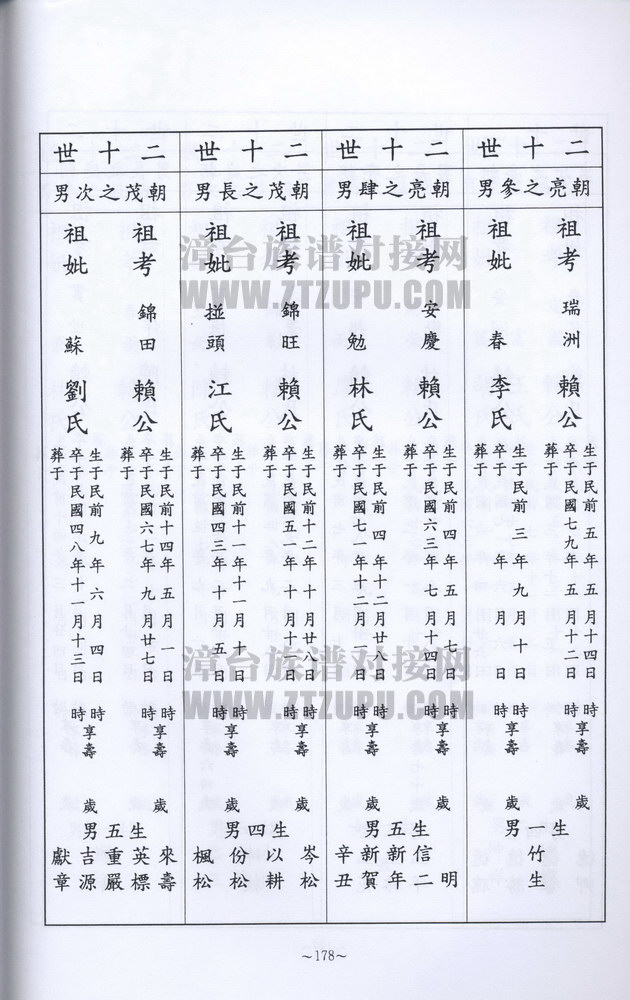 二十世
朝亮之參男
祖考 瑞洲 賴公
生于民前 五年 五月十四日 時享壽 歲
卒于民國七九年 五月十二日 時
葬于
祖妣 春 李氏
生于民前 三年 九月 十日 時享壽 歲
卒于 年 月 日 時
葬于
生一男
竹生
二十世
朝亮之肆男
祖考 安慶 賴公
生于民前 四年 五月 七日 時享壽 歲
卒于民國六三年 七月十四日 時
葬于
祖妣 勉 林氏
生于民前 四年十二月廿八日 時享壽 歲
卒于民國七一年十二月 二日 時
葬于
生五男
明
信二
新年
新賀
辛丑
二十世
朝茂之長男
祖考 錦旺 賴公
生于民前十二年 十月廿八日 時享壽 歲
卒于民國五一年 十月十一日 時
葬于
祖妣 掽頭 江氏
生于民前十一年十一月 十日 時享壽 歲
卒于民國四三年 十月 五日 時
葬于
生四男
岑松
以耕
份松
楓松
二十世
朝茂之次男
祖考 錦田 賴公
生于民前十四年 五月 一日 時享壽 歲
卒于民國六七年 九月廿七日 時
葬于
祖妣 蘇 劉氏
生于民前 九年 六月 四日 時享壽 歲
卒于民國四八年十一月十三日 時
葬于
生五男
來壽
英標
重嚴
吉源
獻章
~178~
漳台族谱对接网
WWW.ZTZUPU.COM
漳台族谱对接网
WWW.ZTZUPU.COM